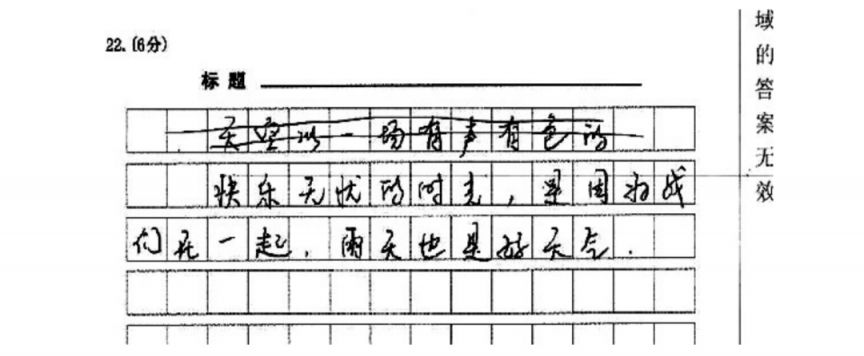 22.(6分)
标题
天空以一场有声有色的
快乐无忧的时光，是因为我
们在一起.雨天也是好天气.
域的答案无效